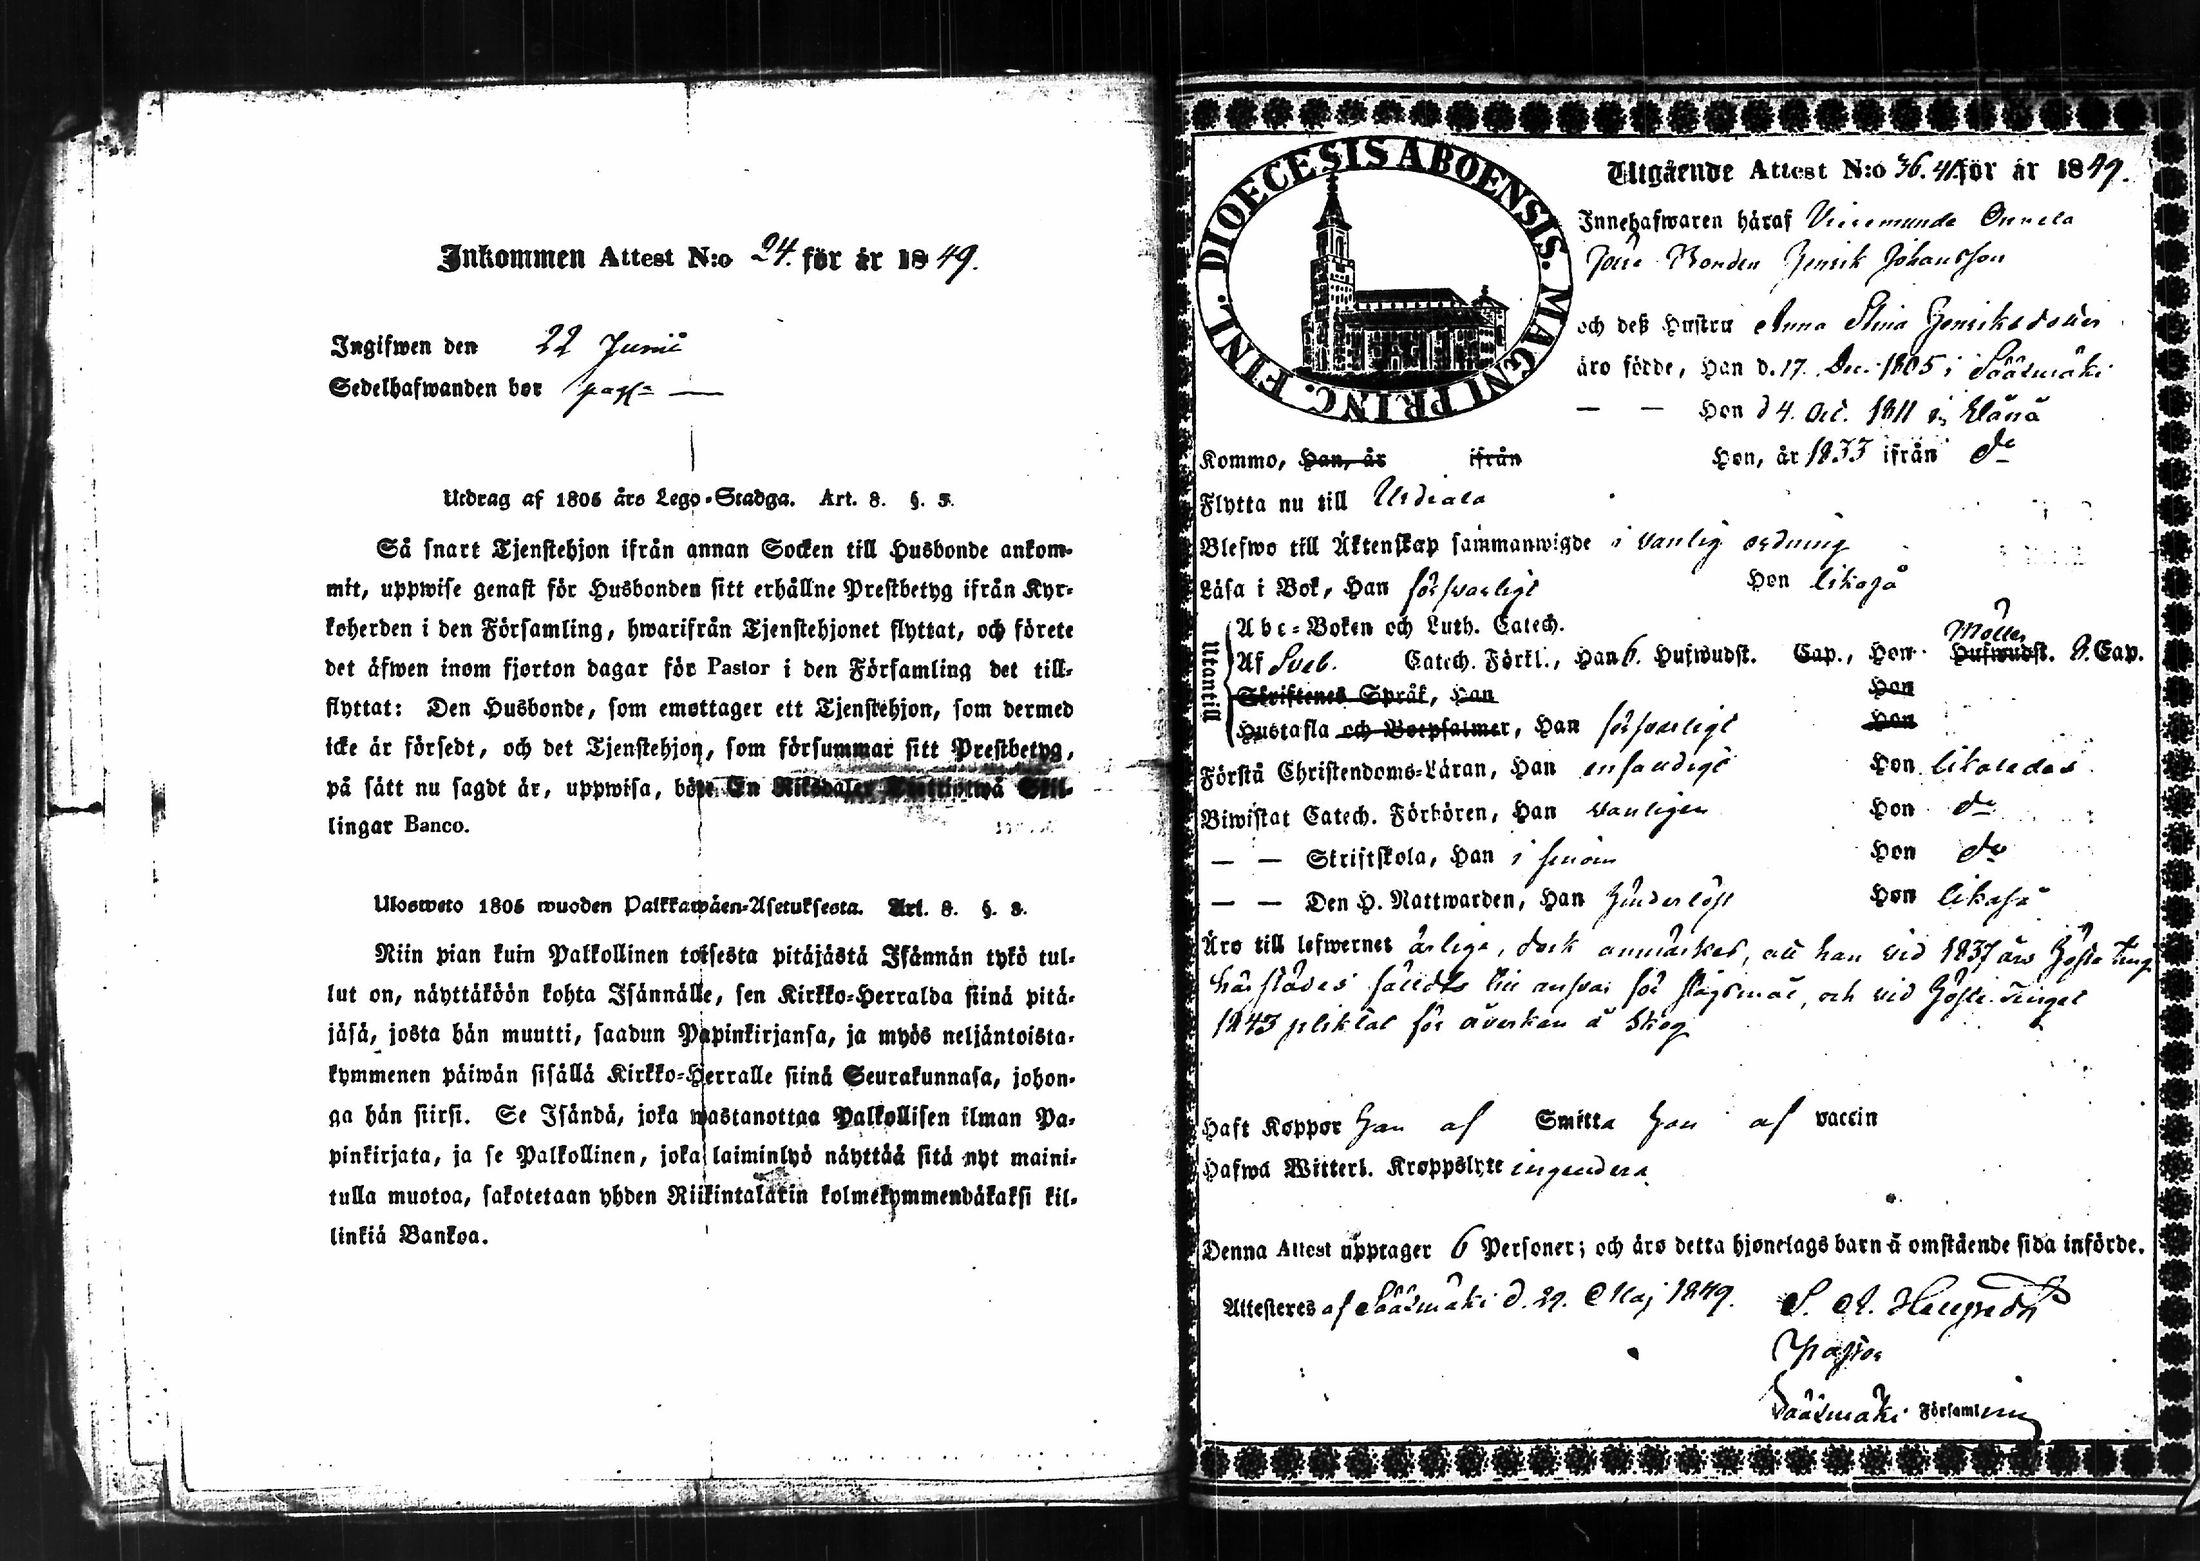 Inkommen Attest N:o 24. för år 1849.
Ingifwen den 22 Junii
Sedelhafwanden bor
Utdrag af 1805 års Lego-Stadga. Art. 8. §. 3.
Så snart Tjenstehjon ifrån annan Socken till Husbonde ankom-
mit, uppwise genast för Husbonden sitt erhållne Prestbetyg ifrån Kyr-
koherden i den Församling, hwarifrån Tjenstehjonet flyttat, och förete
det äfwen inom fjorton dagar för Pastor i den Församling det till-
flyttat: Den Husbonde, som emottager ett Tjenstehjon, som dermed
icke är försedt, och det Tjenstehjon, som försummar sitt Prestbetyg,
på sätt nu sagdt är, uppwisa, böte En Riksdaler Trettiotwå Skil-
lingar Banco.
Ulosweto 1805 wuoden Palkkawäen-Asetuksesta. Art. 8. §. 3.
Niin pian kuin Palkollinen toisesta pitäjästä Isännän tykö tul-
lut on, näyttäköön kohta Isännälle, sen Kirkko-Herralda siinä pitä-
jäsä, josta hän muutti, saadun Papinkirjansa, ja myös neljäntoista-
kymmenen päiwän sisällä Kirkko-Herralle siinä Seurakunnasa, johon-
ga hän siirsi. Se Isändä, joka wastanottaa Palkollisen ilman Pa-
pinkirjata, ja se Palkollinen, joka laiminlyö näyttää sitä nyt maini-
tulla muotoa, sakotetaan yhden Riikintalarin kolmekymmendäkaksi kil-
linkiä Bankoa.
DIOECESIS ABOENSIS. MAGNI PRINC. FINL.
Utgående Attest N:o 36.41 för år 1849.
Innehafwaren häraf Onnela
Bonden Henrik Johansson
och deß Hustru Anna Stina Henriksdotter
äro födde, Han d. 17. Dec. 1805 i Sääxmäki
— — Hon d 4. Oct. 1811 i
Kommo, Han, år ifrån Hon, år 1833 ifrån do
Flytta nu till Urdiala
Blefwo till Äktenskap sammanwigde i vanlig ordning
Läsa i Bok, Han försvarligt Hon likaså
Utantill
Abc-Boken och Luth. Catech.
Af Sveb. Catech. Förkl., Han 6. Hufwudst. Cap., Hon Möller Hufwudst. 9. Cap.
Skriftenes Språk, Han Hon
Hustafla och Botpsalmer, Han försvarligt Hon
Förstå Christendoms-Läran, Han enfaldigt Hon likaledes
Biwistat Catech. Förhören, Han vanligen Hon do
— — Skriftskola, Han i Hon do
— — Den H. Nattwarden, Han hinderlöst Hon likaså
Äro till lefwernet ärlige, dock anmärkes, att han vid 1837 års Höste Ting
härstädes fälldts till ansvar för slagsmål, och vid Höste Tinget
1843 pliktat för åverkan å skog
Haft Koppor Han af Smitta Hon af vaccin
Hafwa Witterl. Kroppslyte ingendera
Denna Attest upptager 6 Personer; och äro detta hjonelags barn å omstående sida införde.
Attesteres af Sääxmäki d. 29. Maj 1849.
Pastor
Sääxmäki Församling